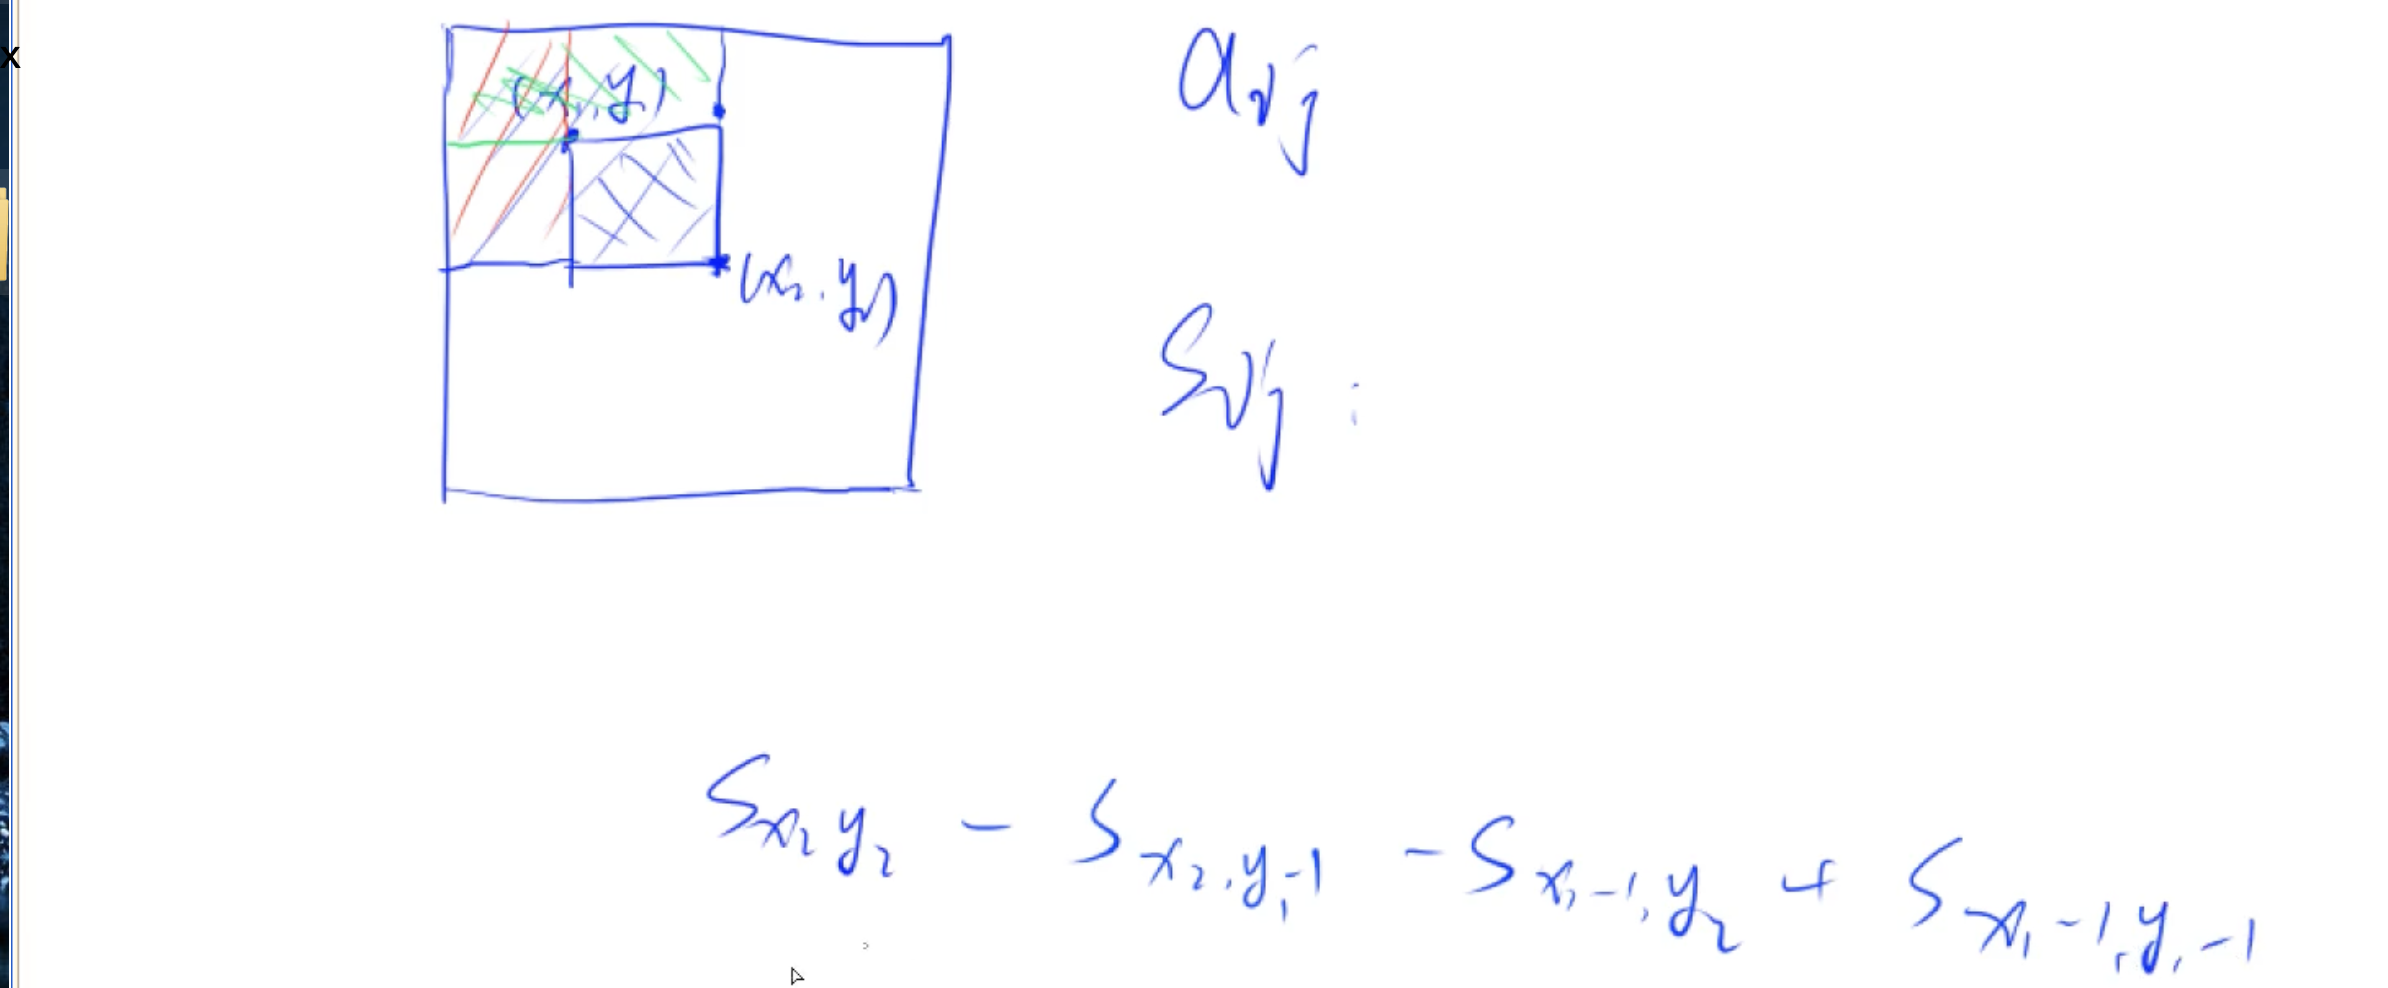 x
(x, y)
a_ij
(x₂, y₂)
S_ij :
S_{x₂ y₂} - S_{x₂, y₁-1} - S_{x₁-1, y₂} + S_{x₁-1, y₁-1}